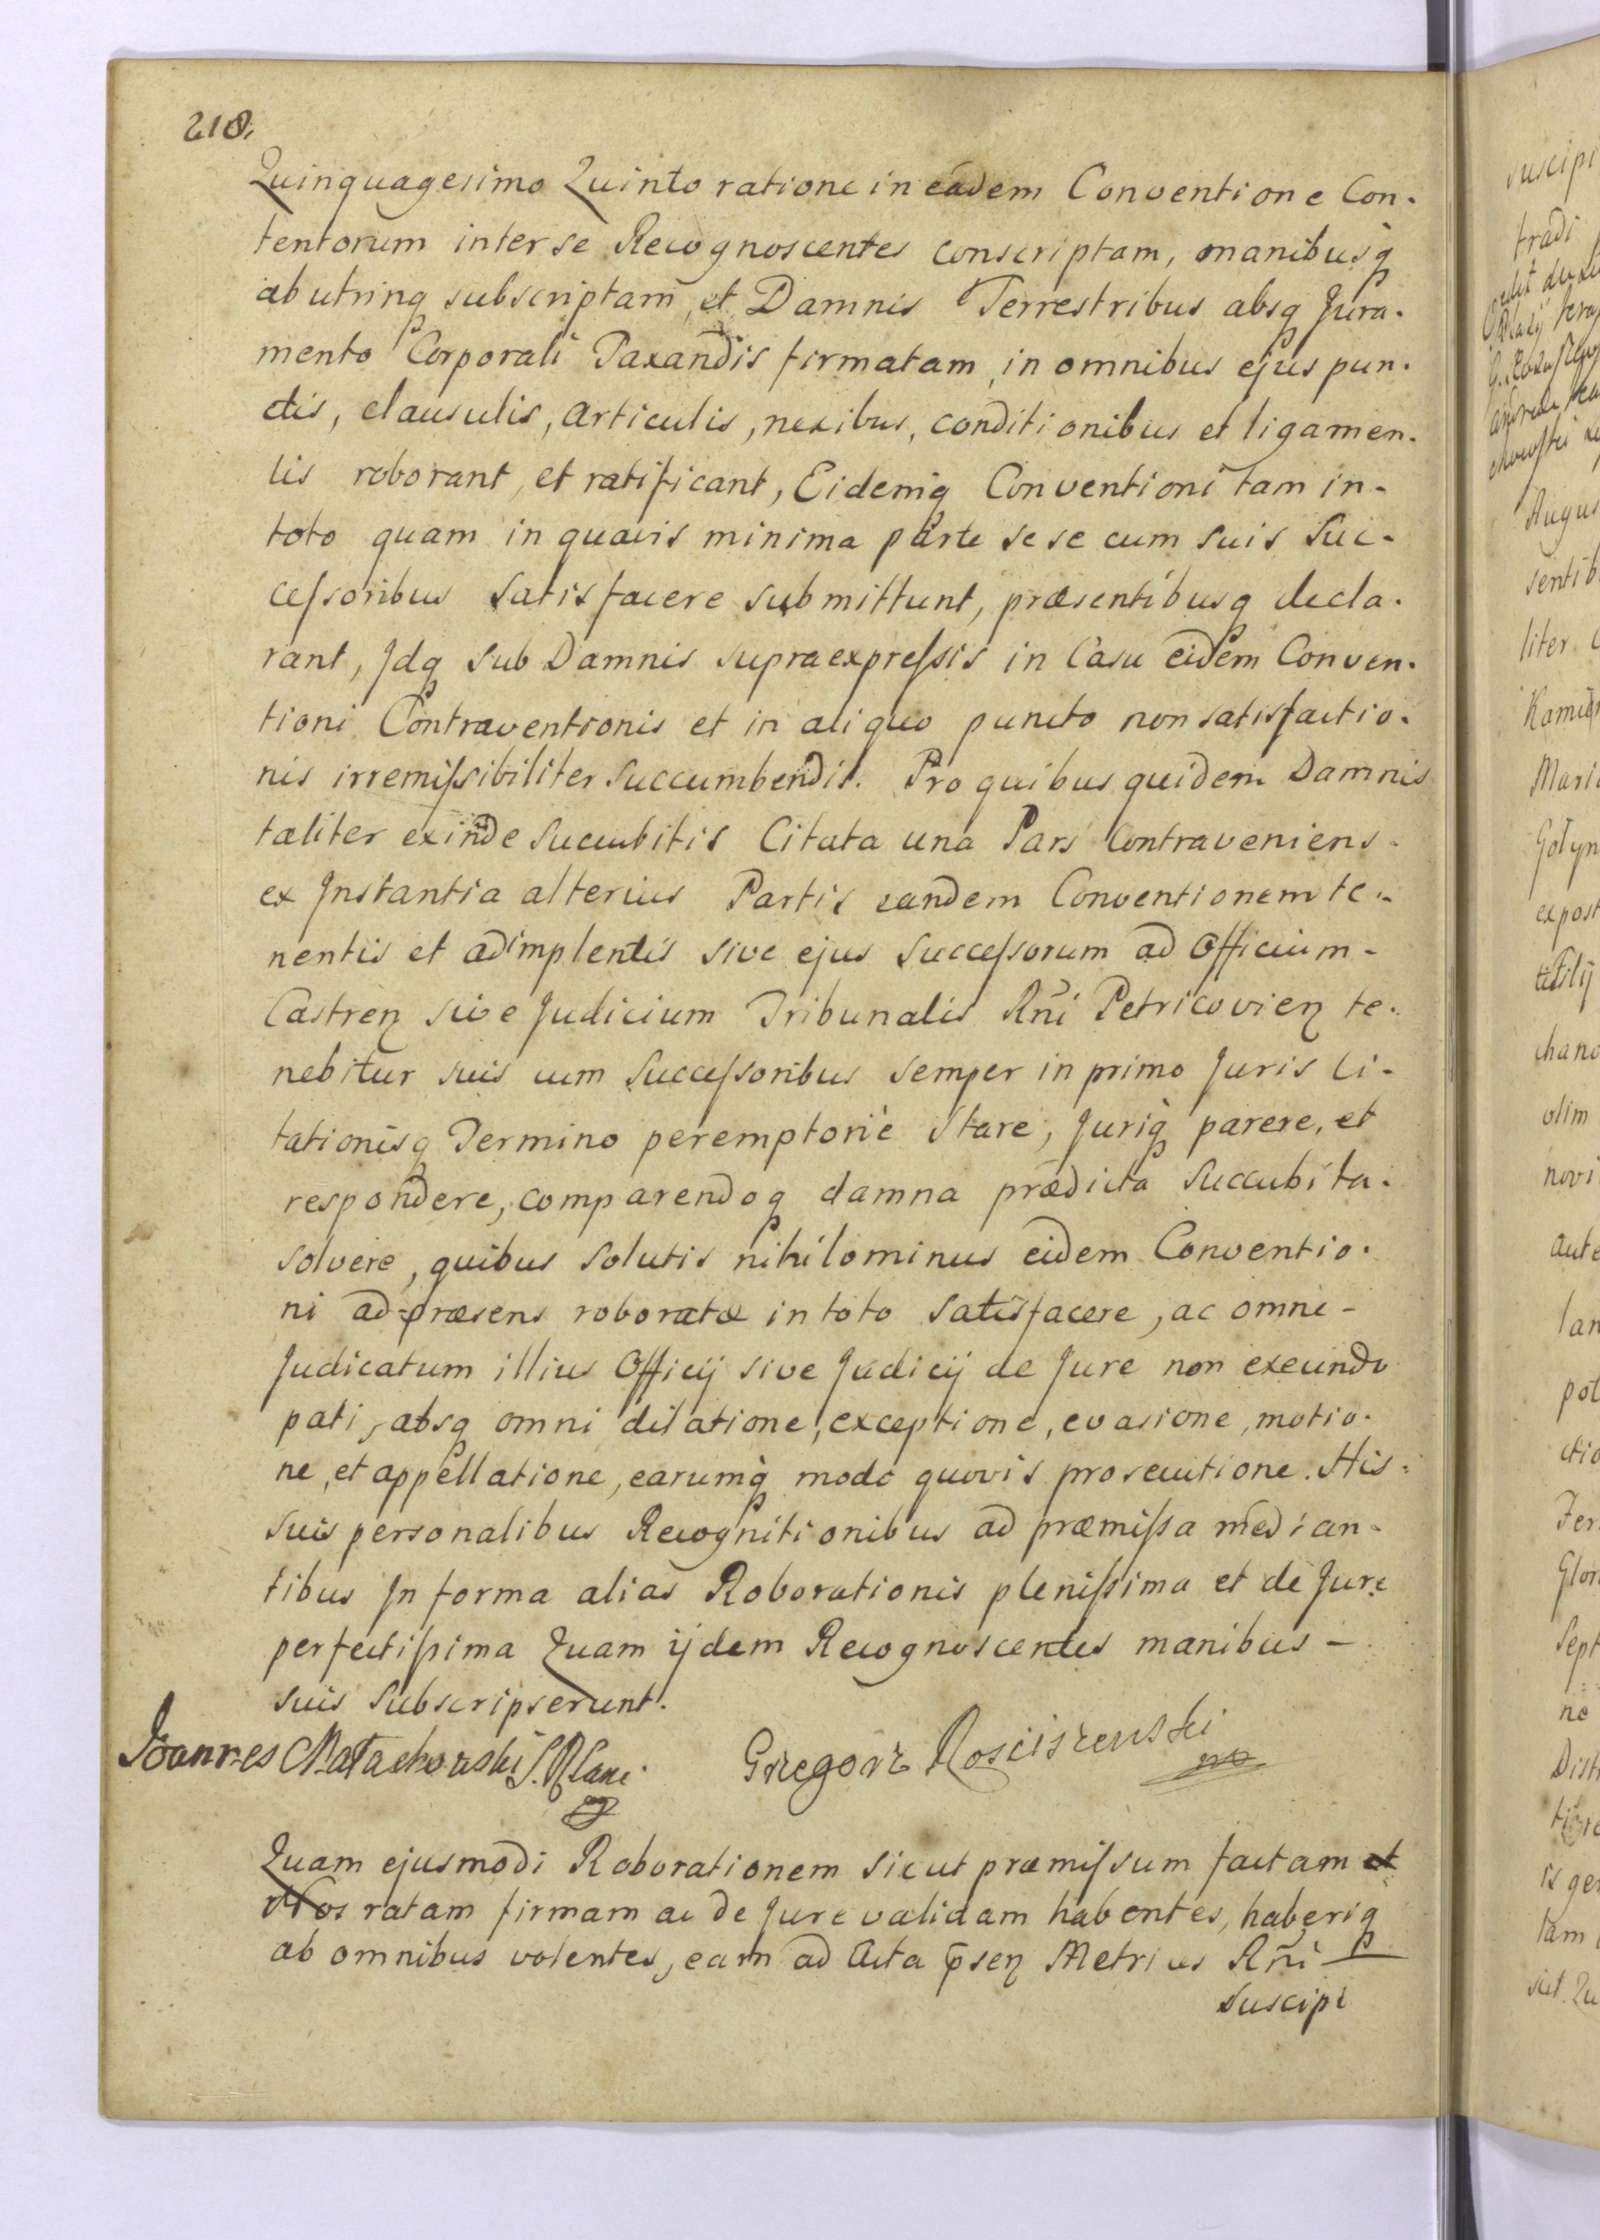 218.
Quinquagesimo Quinto ratione in eâdem Conventione Con-
tentorum inter se Recognoscentes conscriptam, manibusq́
ab utrinq subscriptam, et Damnis Terrestribus absq Jura-
mento Corporali Taxandis firmatam, in omnibus ejus pun-
ctis, clausulis, articulis, nexibus, conditionibus et ligamen-
tis roborant, et ratificant, Eidemq́ Conventioni tam in-
toto quam in quavis minima parte sese cum suis Suc-
ceſsoribus satisfacere submittunt, præsentibusq decla-
rant, Jdq sub Damnis supraexpreſsis in Casu eidem Conven-
tioni Contraventionis et in aliquo puncto non satisfactio-
nis irremiſsibiliter succumbendis. Pro quibus quidem Damnis
taliter exinde succubitis Citata una Pars Contraveniens-
ex Jnstantia alterius Partis eandem Conventionem te-
nentis et adimplentis sive ejus Succeſsorum ad Officium-
Castreṉ sive Judicium Tribunalis Rñi Petricovieṉ te-
nebitur suis cum Succeſsoribus semper in primo Juris Ci-
tationisq Termino peremptoriè Stare, Juriq́ parere, et
respondere, comparendoq damna prædicta succubita-
solvere, quibus solutis nihilominus eidem Conventio-
ni ad præsens roboratæ in toto satisfacere, ac omne-
Judicatum illius Officij sive Judicij de Jure non exeundo
pati, absq omni dilatione, exceptione, evasione, motio-
ne, et appellatione, earumq́ modo quovis prosecutione. His-
suis personalibus Recognitionibus ad præmiſsa median-
tibus Jn forma alias Roborationis pleniſsima et de Jure
perfectiſsima Quam ijdem Recognoscentes manibus-
suis subscripserunt.
Joannes Małachowski
Grzegorz Rosciszewski
mp
Quam ejusmodi Roborationem sicut præmiſsum factam et
Nos ratam firmam ac de Jure validam habentes, haberiq
ab omnibus volentes, eam ad Acta p̄seṉ Metrices Rñi
Suscipi